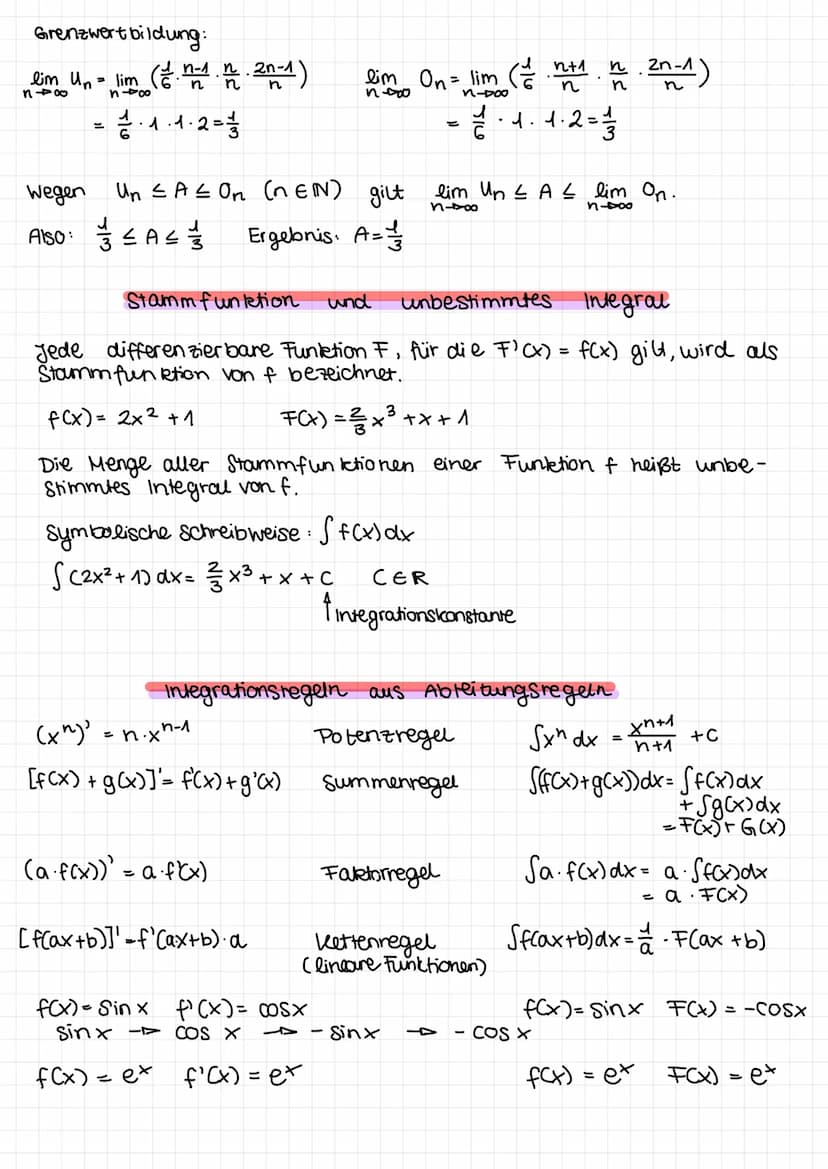 Grenzwertbildung:
lim n→∞ Un = lim n→∞ (1/6 · n-1/n · n/n · 2n-1/n)    lim n→∞ On = lim n→∞ (1/6 · n+1/n · n/n · 2n-1/n)
= 1/6 · 1 · 1 · 2 = 1/3    = 1/6 · 1 · 1 · 2 = 1/3
Wegen Un ≤ A ≤ On (n ∈ ℕ) gilt lim n→∞ Un ≤ A ≤ lim n→∞ On.
Also: 1/3 ≤ A ≤ 1/3    Ergebnis: A = 1/3
Stammfunktion und unbestimmtes Integral
Jede differenzierbare Funktion F, für die F'(x) = f(x) gilt, wird als
Stammfunktion von f bezeichnet.
f(x) = 2x² + 1    F(x) = 2/3 x³ + x + 1
Die Menge aller Stammfunktionen einer Funktion f heißt unbe-
stimmtes Integral von f.
Symbolische Schreibweise: ∫ f(x) dx
∫ (2x² + 1) dx = 2/3 x³ + x + C    C ∈ R
↑ Integrationskonstante
Integrationsregeln aus Ableitungsregeln
(xⁿ)' = n · xⁿ⁻¹    Potenzregel    ∫xⁿ dx = xⁿ⁺¹/n+1 + C
[f(x) + g(x)]' = f'(x) + g'(x)    Summenregel    ∫(f(x)+g(x))dx = ∫f(x)dx
+ ∫g(x)dx
= F(x) + G(x)
(a · f(x))' = a · f'(x)    Faktorregel    ∫a · f(x) dx = a · ∫f(x)dx
= a · F(x)
[f(ax+b)]' = f'(ax+b) · a    Kettenregel    ∫f(ax+b)dx = 1/a · F(ax + b)
(lineare Funktionen)
f(x) = sin x    f'(x) = cos x    f(x) = sin x    F(x) = -cos x
sin x → cos x → - sin x → - cos x
f(x) = eˣ    f'(x) = eˣ    f(x) = eˣ    F(x) = eˣ